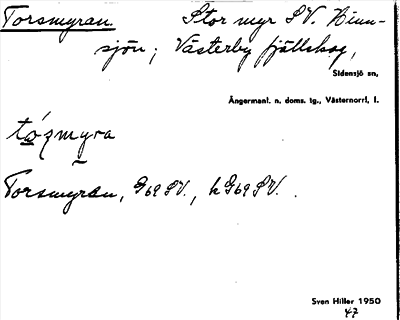 Torsmyran. Stor myr SV. Hinn-
sjön; Västerby fjällskog,
Sidensjö sn,
Ångermanl. n. doms. tg., Västernorrl. l.
tózmyra
Torsmyran, G69SV., kG69SV.
Sven Hiller 1950
47